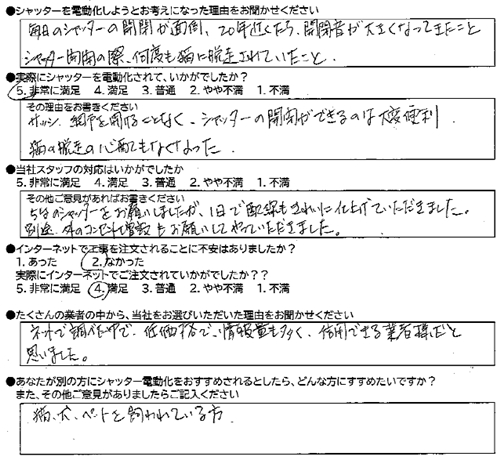 ●シャッターを電動化しようとお考えになった理由をお聞かせください
毎日のシャッターの開閉が面倒、20年近くたち、開閉音が大きくなってきたこと
シャッター開閉の際、何度も猫に脱走されていたこと。
●実際にシャッターを電動化されて、いかがでしたか?
5.非常に満足 4.満足 3.普通 2.やや不満 1.不満
その理由をお書きください
サッシ、網戸を開けることなく、シャッターの開閉ができるのは大変便利
猫の脱走の心配もなくなった。
●当社スタッフの対応はいかがでしたか
5.非常に満足 4.満足 3.普通 2.やや不満 1.不満
その他ご意見があればお書きください
シャッターをお願いしましたが、1日で配線もきれいに仕上げていただきました。
別途、外のコンセント増設もお願いしてやっていただきました。
●インターネットで工事を注文されることに不安はありましたか?
1.あった 2.なかった
実際にインターネットでご注文されていかがでしたか??
5.非常に満足 4.満足 3.普通 2.やや不満 1.不満
●たくさんの業者の中から、当社をお選びいただいた理由をお聞かせください
ネットで調べた中で、低価格で、情報量も多く、信用できる業者様だと
思いました。
●あなたが別の方にシャッター電動化をおすすめされるとしたら、どんな方にすすめたいですか?
また、その他ご意見がありましたらご記入ください
猫、犬、ペットを飼われている方